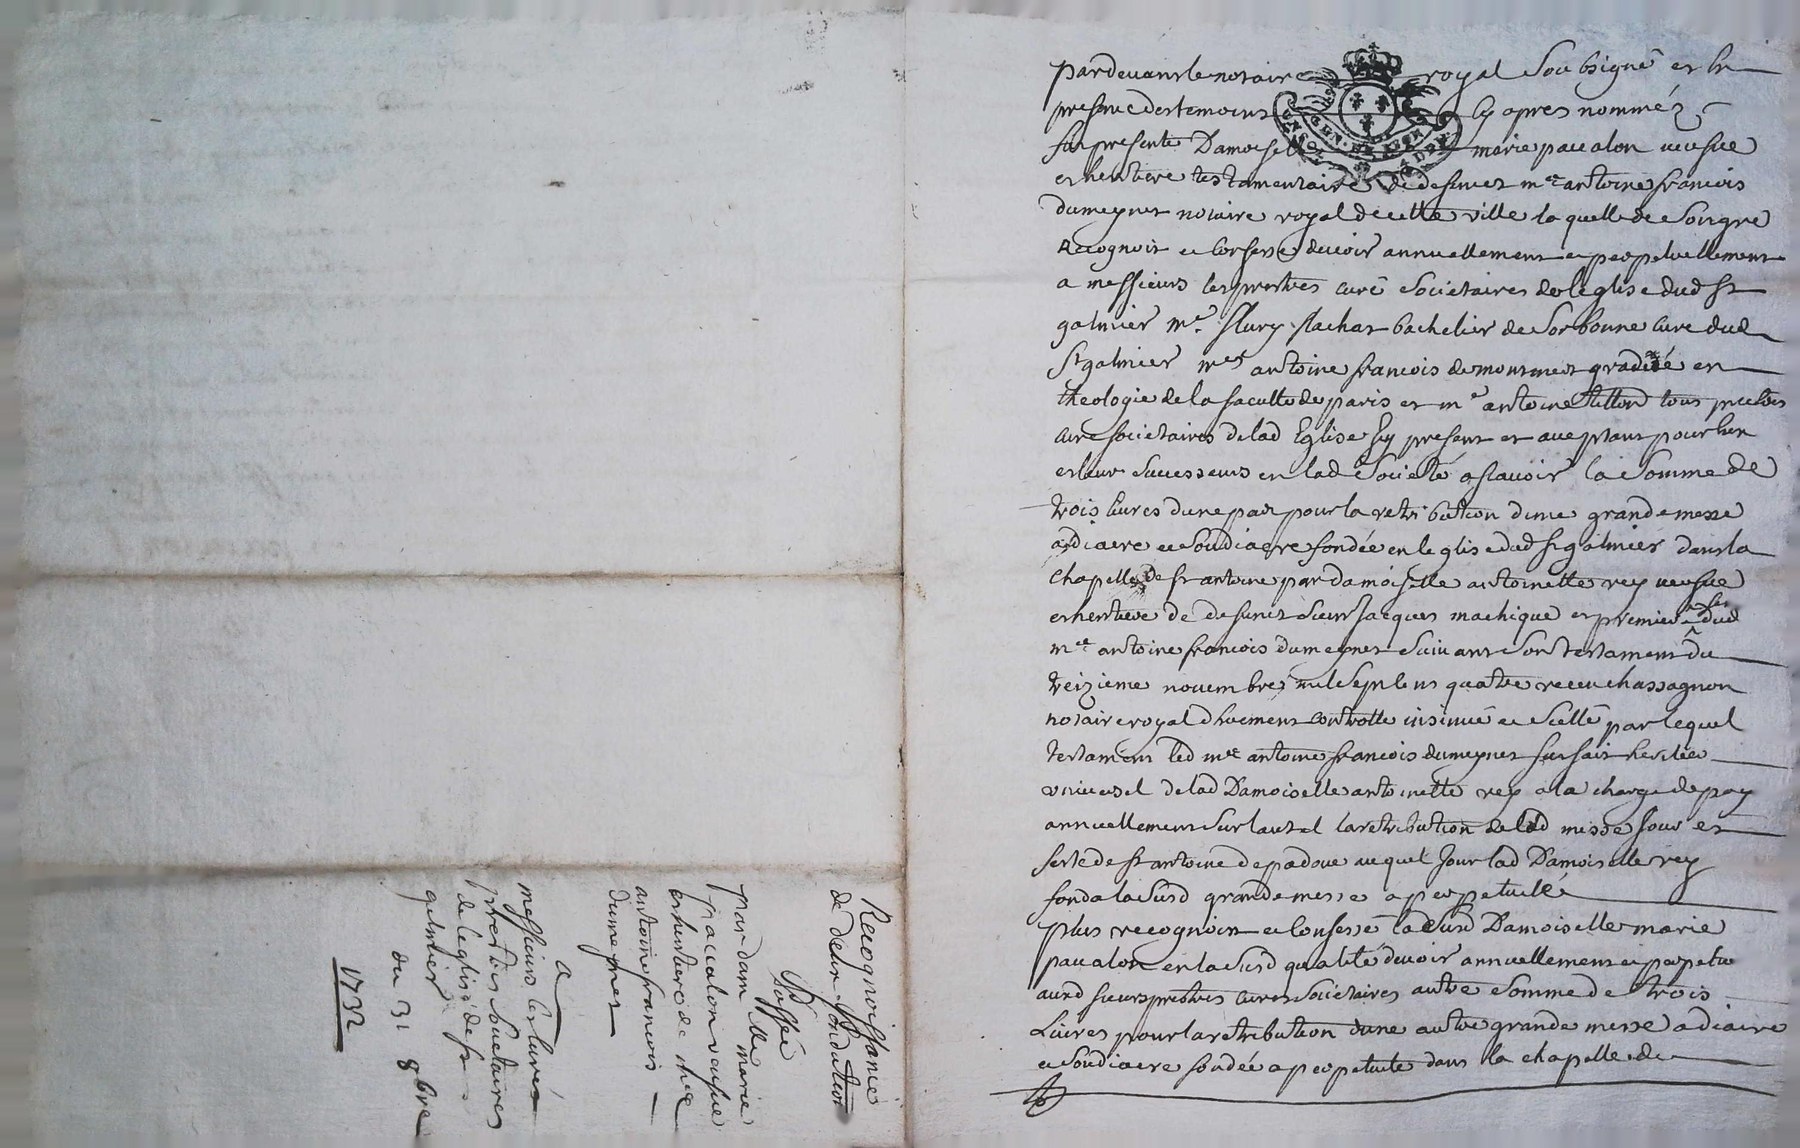 Recognoissance
de deux fondation
Passée
par dam lle marie
paccalon veufue
et heritiere de me
antoine francois
dumeynet
a
messieurs les curé
prertres Societaires
de leglise de st
galmier
du 31 8bre
1732
pardevant le notaire royal Soubsigné et en
presence des temoins cy apres nommés
fut presente Damoiselle marie pacalon veufue
et heritiere testamentaire de deffunct me antoine francois
dumeynet notaire royal de cette ville laquelle de Son gre
recognoit et confesse devoir annuellement et perpetuellement
a messieurs les prestres curé Societaires de leglise dud st
galmier me flury flachat bachelier de Sorbonne cure dud
St galmier mes antoine francois de gradué en
theologie de la faculté de paris et me antoine tous prestres
cure societaires de lad Eglise cy present et acceptant pour eux
et leur Successeurs en lad Societé a scavoir la Somme de
trois livres dune part pour la retribution dune grande messe
a diacre et Soudiacre fondée en leglise dud st galmier dans la
chapelle de st antoine par damoiselle antoinette rey veufue
et heritiere de deffunct Sieur Jacques machique et premiere dud
me antoine francois dumeynet Suivant Son testament du
treizieme novembre mil Sept cens quatre receu chassagnon
notaire royal dhuement controllé insinué et Scellé par lequel
testament led me antoine francois dumeynet fut fait heritier
universel de lad Damoiselle antoinette rey a la charge de pay
annuellement Sur lautel la retribution de lad messe Jour et
feste de st antoine de padoue auquel Jour lad Damoiselle rey
fonda la Susd grande messe a perpetuité
plus recognoit et confesse la Susd Damoiselle marie
pacalon en la Susd qualité devoir annuellement et perpetu
ausd sieurs prestres cures Societaires autre Somme de trois
Livres pour la retribution dune autre grande messe a diacre
et Soudiacre fondée a perpetuite dans la chapelle de